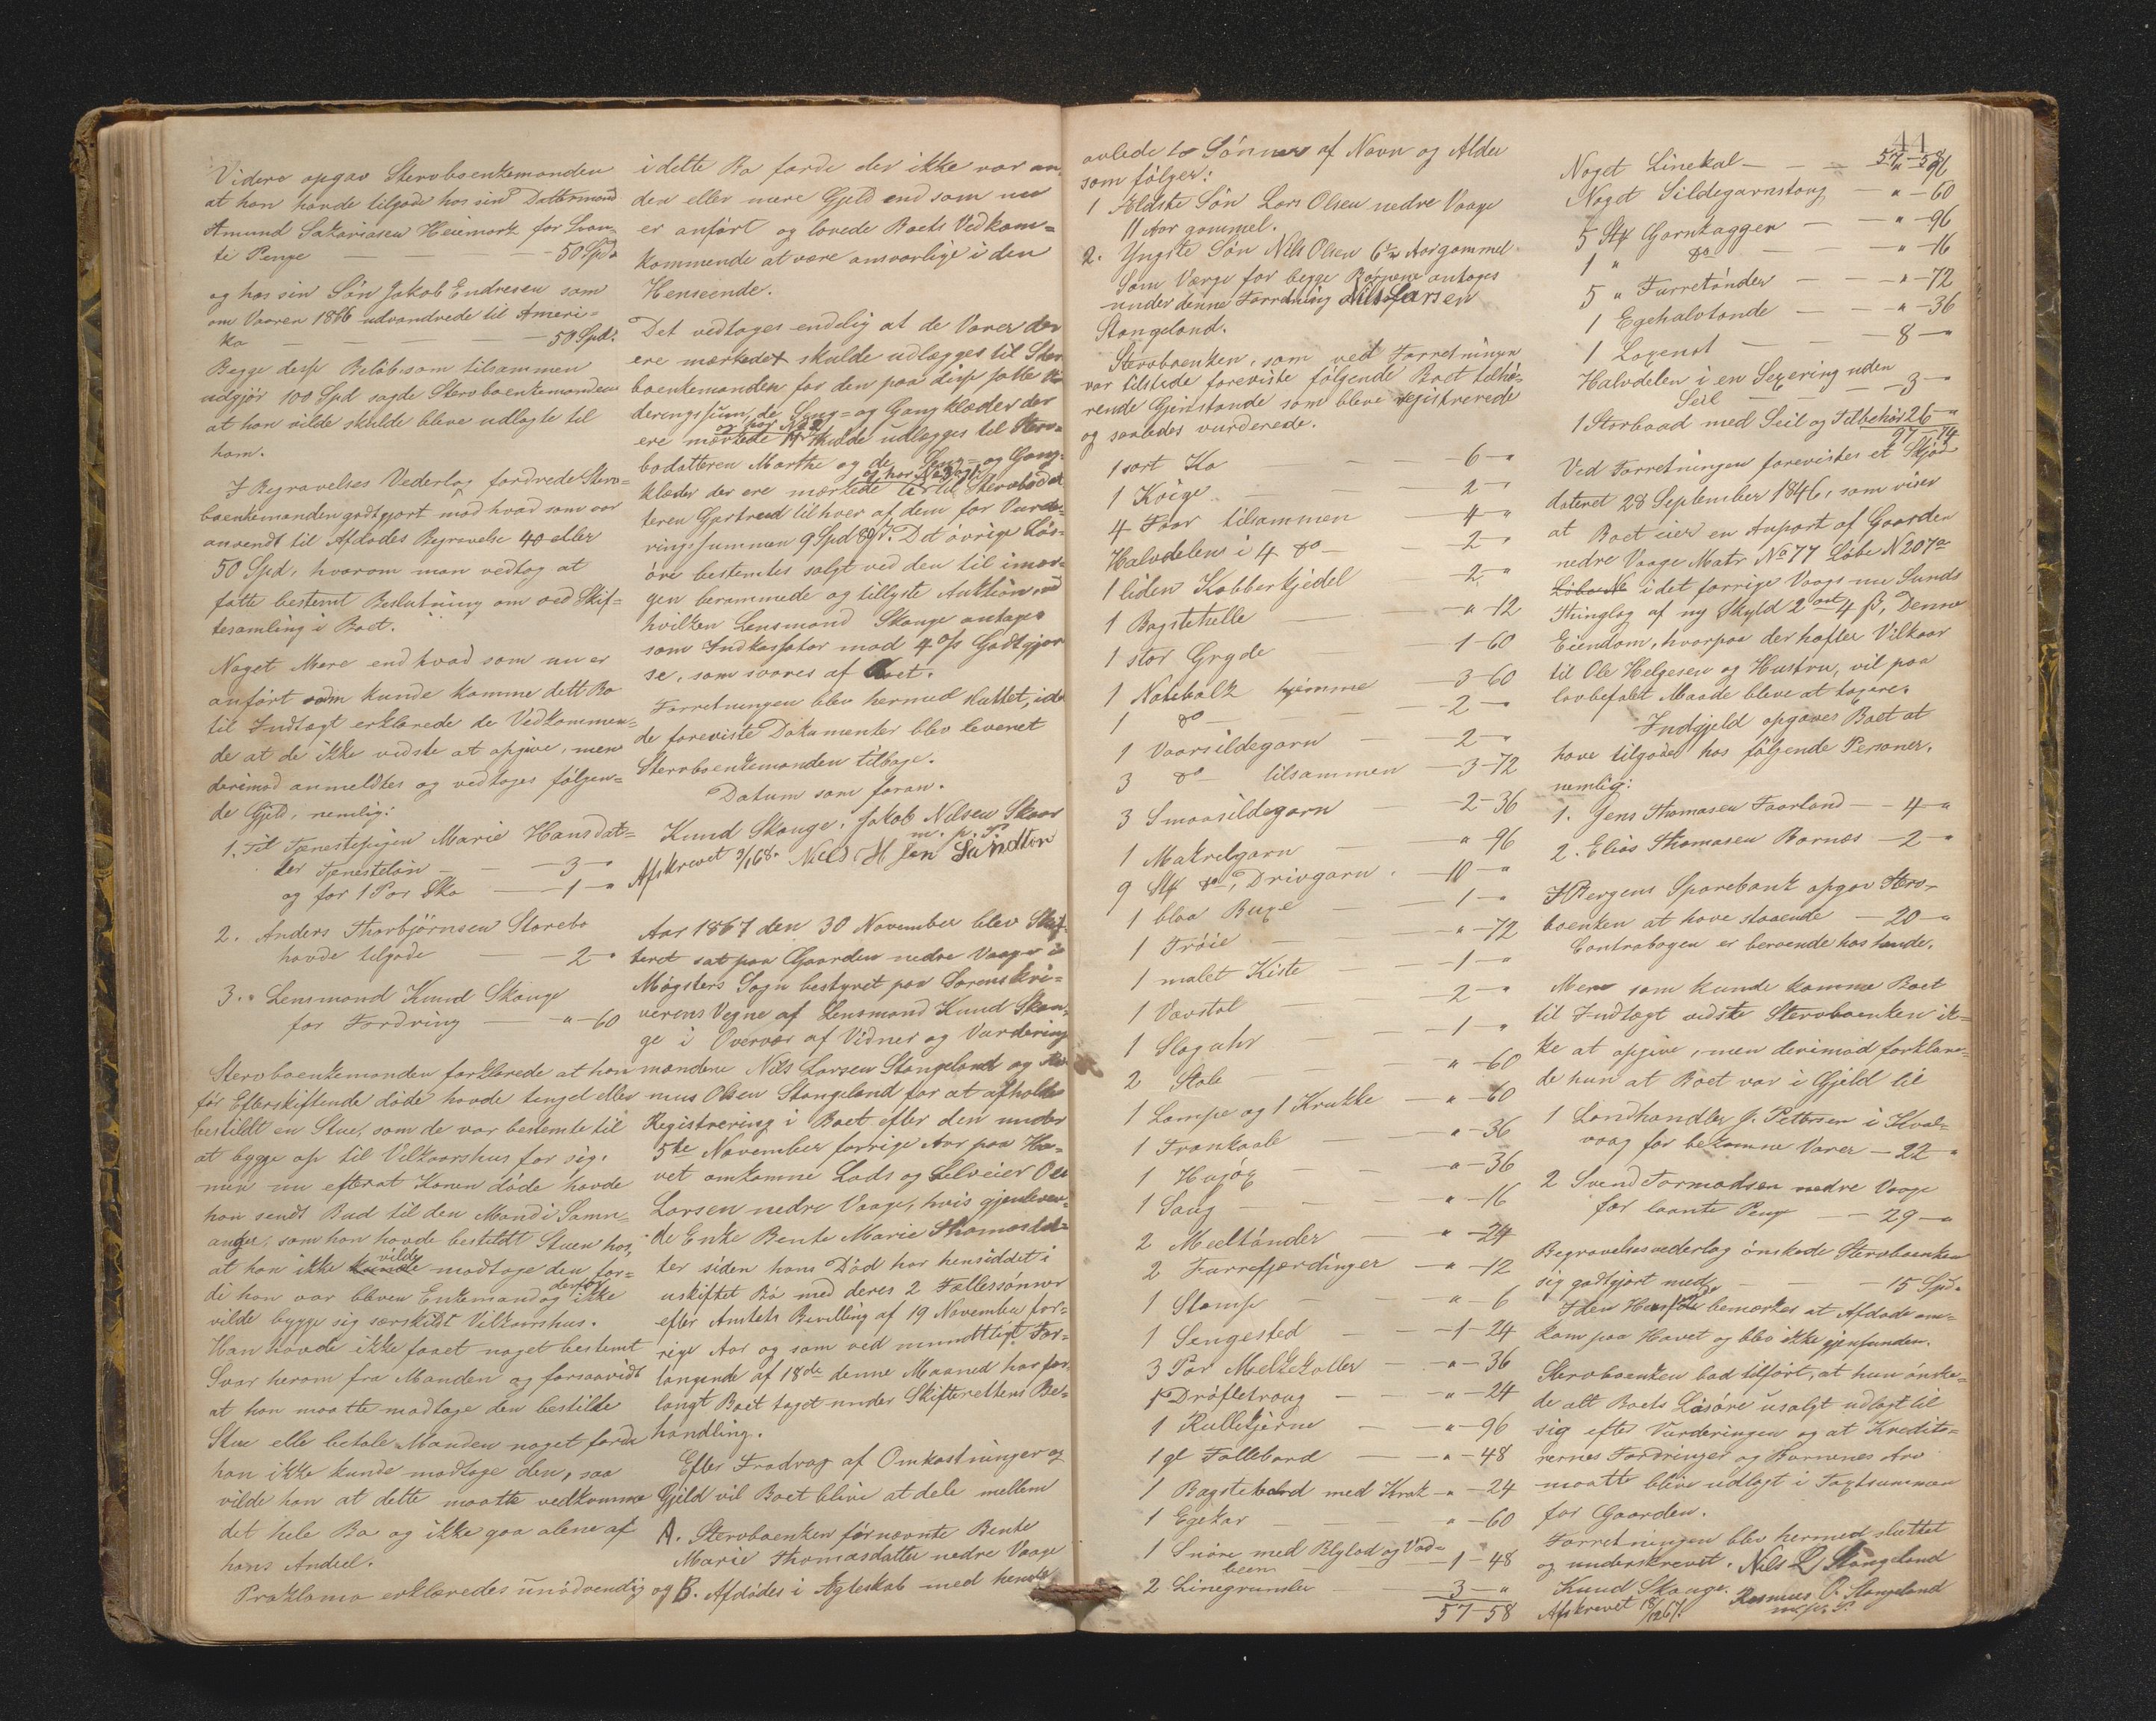 Videre opgav Sterboenkemanden
at han havde tilgode hos sin Dattermand
Amund Sakariasen Heiemark for Laan-
te Penge — — — 50 Spd.
og hos sin Søn Jakob Endresen som
om Vaaren 1866 udvandrede til Ameri=
ka — — — 50 Spd.
Begge disse Beløb som tilsammen
udgjør 100 Spd sagde Sterboenkemanden
at han vilde skulde bleve udlagte til
ham.
I Begravelses Vederlag fordrede Sterv=
boenkemanden godtgjort mod hvad som var
anvendt til Afdødes Begravelse 40 eller
50 Spd, hvorom man vedtog at
fatte bestemt Beslutning om ved Skif=
tesamling i Boet.
Noget Mere end hvad som nu er
anført som kunde komme dett Bo
til Indtægt erklærede de Vedkommen=
de at de ikke vidste at opgive, men
derimod anmeldtes og vedtoges følgen=
de Gjeld, nemlig:
1. Til Tjenestepigen Marie Hansdat=
ter Tjenesteløn — — 3 — "
og for 1 Par Sko — 1 — "
2. Anders Thorbjørnsen Storebø
havde tilgode — — 2 — "
3. " Lensmand Knud Skauge
for Fordring — " — 60
Stervboenkemanden forklarede at han
før Efterskiftende døde havde tinget eller
bestildt en Stue, som de var bestemte til
at bygge op til Vilkaarshus for sig.
men nu efterat Konen døde havde
han sendt Bud til den Mand i Samn=
anger, som han havde bestildt Stuen hos,
at han ikke kunde vilde modtage den for=
di han var bleven Enkemand og derfor ikke
vilde bygge sig særskildt Vilkaarshus.
Han havde ikke faaet noget bestemt
Svar herom fra Manden og forsaavidt
at han maatte modtage den bestilte
Stue elle betale Manden noget fordi
han ikke kunde modtage den, saa
vilde han at dette maatte vedkomme
det hele Bo og ikke gaa alene af
hans Andeel.
Proklama erklæredes unødvendig
i dette Bo fordi der ikke var an
den eller mere Gjeld end som nu
er anført og lovede Boets Vedkom=
kommende at være ansvarlige i den
Henseende.
Det vedtoges endelig at de Varer der
ere mærkede + skulde udlægges til Sterv
boenkemanden for den paa disse satte Vur
deringssum, de Seng= og Gangklæder der
ere mærkede og har No 2 skulde udlægges til Sterv=
bodatteren Marthe og de Seng= og Gang=
klæder der ere mærkede til Stervbodat
teren Gjertrud til hver af dem for Vurde=
ringssummen 9 Spd. Det øvrige Løs=
øre bestemtes solgt ved den til imor=
gen berammede og tillyste Auktion ved
hvilken Lensmand Skauge antages
som Indkassator mod 4 o/s Godtgjør
se, som svares af Boet.
Forretningen blev hermed sluttet, idet
de foreviste Dokumenter blev leveret
Stervboenkemanden tilbage.
Datum som foran.
Knud Skauge. Jakob Nilsen Skaar
m. p. P.
Afskrevet 3/1 68. Niels H sen Sandtor
Aar 1867 den 30 November blev Skif=
teret sat paa Gaarden nedre Vaage i
Møgsters Sogn bestyret paa Sorenskri=
verens Vegne af Lensmand Knud Skau=
ge i Overvær af Vidner og Vurderings
mændene Nils Larsen Stangeland og Ras
mus Olsen Stangeland for at afholde
Registrering i Boet efter den under
5te November forrige Aar paa Ha=
vet omkomne Lods og Selveier Ole
Larsen nedre Vaage, hvis gjenleven=
de Enke Bente Marie Thomasdat=
ter siden hans Død har hensiddet i
uskiftet Bo med deres 2 Fællessønner
efter Amtets Bevilling af 19 November for=
rige Aar og som ved mundtligt For=
langende af 18de denne Maaned har for
langt Boet taget under Skifterettens Be=
handling.
Efter Fradrag af Omkostninger og
Gjeld vil Boet blive at dele mellem
A. Stervboenken førnævnte Bente
Marie Thomasdatter nedre Vaage
og B. Afdødes i Ægteskab med hende
avlede to Sønner af Navn og Alder
som følger:
1 Ældste Søn Lars Olsen nedre Vaage
11 Aar gammel.
2. Yngste Søn Nils Olsen 6½ Aar gammel.
Som Værge for begge Børnene antages
under denne Forretning Nils Larsen
Stangeland.
Stervboenken, som ved Forretningen
var tilstede foreviste følgende Boet tilhø=
rende Gjenstande som bleve registrerede
og saaledes vurderede.
1 sort Ko — — 6 — "
1 Kvige — — 2 — "
4 Faar tilsammen — 4 — "
Halvdelen i 4 do — — 2 — "
1 liden Kobberkjedel — 2 — "
1 Bagstehelle — — " — 12
1 stor Gryde — — 1 — 60
1 Notebolk hjemme — 3 — 60
1 do — — 2 — "
1 Vaarsildegarn — 2 — "
3 do — tilsammen — 3 — 72
3 Smaasildegarn — 2 — 36
1 Makrelgarn — " — 96
9 Stk do, Drivgarn — 10 — "
1 blaa Buxe — — 1 — "
1 Trøie — — " — 72
1 malet Kiste — — 1 — "
1 Vævstol — — 2 — "
1 Slaguhr — — 1 — "
2 Stole — — " — 60
1 Lampe og 1 Krukke — " — 60
1 Trankaale — — " — 36
1 Hujøg — — " — 36
1 Saug — — " — 16
2 Meeltønder — " — 24
2 Tørrefjerdinger — " — 12
1 Stamp — — " — 6
1 Sengested — — 1 — 24
3 Par Melkekoller — " — 36
1 Drøfletroug — — " — 24
1 Rullekjerne — — " — 96
1 gl Foldebord — — " — 48
1 Bagstebord med Krak — " — 24
1 Egekar — — " — 60
1 Snøre med Blylod og Vad=
been — 1 — 48
2 Linegrunsler — 3 — "
57 — 58
41
57 — 58
Noget Linekal — — " — 96
Noget Sildegarnstoug — " — 60
5 Stk Garntagger — " — 96
1 " do — — " — 16
5 " Tørretønder — " — 72
1 Egehalvtønde — — " — 36
1 Laxenot — — 8 — "
Halvdelen i en Sexering uden
Seil — — 3 — "
1 Storbaad med Seil og Tilbehør 26 — "
97 — 74
Ved Forretningen forevistes et Skjøde
dateret 28 September 1846, som viser
at Boet eier en Anpart af Gaarden
nedre Vaage Matr No 77 Løbe N 207a
i det forrige Vaags nu Sunds
Thinglag af ny Skyld 2 ort 4 ß, Denne
Eiendom, hvorpaa der hefter Vilkaar
til Ole Helgesen og Hustru, vil paa
lovbefalet Maade bleve at taxere.
Indgjeld opgaves Boet at
have tilgode hos følgende Personer,
nemlig:
1. Jens Thomasen Faarland — 4 — "
2. Elias Thomasen Bornæs — 2 — "
I Bergens Sparebank opgav Sterv=
boenken at have staaende — 20 — "
Contrabogen er beroende hos hende.
Mere som kunde komme Boet
til Indtægt vidste Stervboenken ik=
ke at opgive, men derimod forklare=
de hun at Boet var i Gjeld til
1 Landhandler J. Pettersen i Kval=
vaag for bekomne Varer — 22 — "
2 Svend Tormodsen nedre Vaage
for laante Penge — 29 — "
Begravelsesvederlag ønskede Stervboenken
sig godtgjort med — — 15 Spd.
I den Henseende bemærkes at Afdøde om=
kom paa Havet og blev ikke gjenfunden.
Stervboenken bad tilført, at hun ønske=
de alt Boets Løsøre usolgt udlagt til
sig efter Vurderingen og at Kredito=
rernes Fordringer og Børnenes Arv
maatte blive udlagt i Taxtsummen
for Gaarden.
Forretningen blev hermed sluttet
og underskrevet. Nils L Stangeland
Knud Skauge. Rasmus O. Stangeland
Afskrevet 18/12 67. m. p. P.